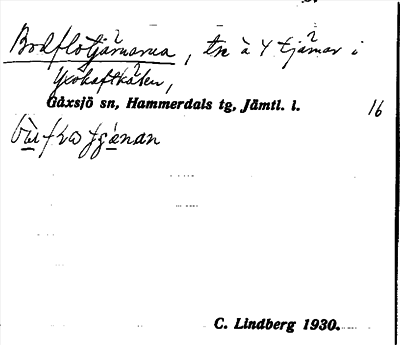 Bodflotjärnarna, tre à 4 tjärnar i
Gåxsjö sn, Hammerdals tg, Jämtl. l.
16
C. Lindberg 1930.